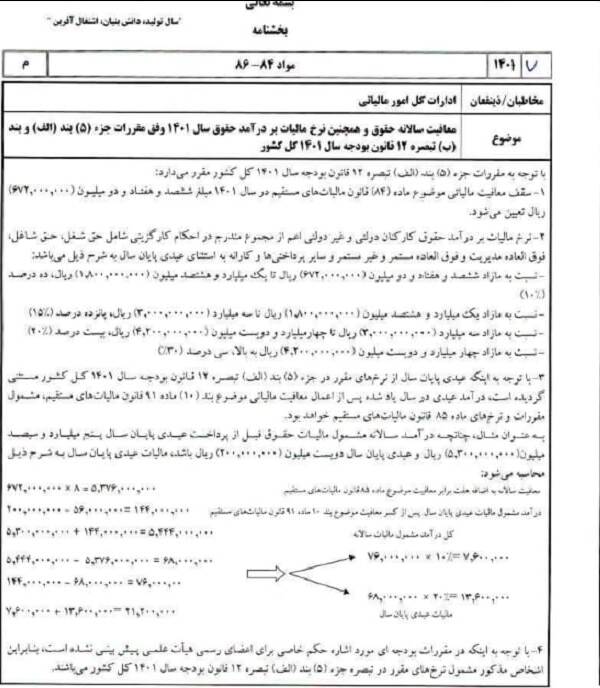 بسمه تعالی
"سال تولید، دانش بنیان، اشتغال آفرین"
بخشنامه
۷ ۱۴۰۱ مواد ۸۴-۸۶ م
مخاطبان/ذینفعان ادارات کل امور مالیاتی
موضوع معافیت سالانه حقوق و همچنین نرخ مالیات بر درآمد حقوق سال ۱۴۰۱ وفق مقررات جزء (۵) بند (الف) و بند
(ب) تبصره ۱۲ قانون بودجه سال ۱۴۰۱ کل کشور
با توجه به مقررات جزء (۵) بند (الف) تبصره ۱۲ قانون بودجه سال ۱۴۰۱ کل کشور مقرر می‌دارد:
۱- سقف معافیت مالیاتی موضوع ماده (۸۴) قانون مالیات‌های مستقیم در سال ۱۴۰۱ مبلغ ششصد و هفتاد و دو میلیون (۶۷۲,۰۰۰,۰۰۰)
ریال تعیین می‌شود.
۲- نرخ مالیات بر درآمد حقوق کارکنان دولتی و غیر دولتی اعم از مجموع مندرج در احکام کارگزینی شامل حق شغل، حق شاغل،
فوق العاده مدیریت و فوق العاده مستمر و غیر مستمر و سایر پرداختی‌ها و کارانه به استثنای عیدی پایان سال به شرح ذیل می‌باشد:
-نسبت به مازاد ششصد و هفتاد و دو میلیون (۶۷۲,۰۰۰,۰۰۰) ریال تا یک میلیارد و هشتصد میلیون (۱,۸۰۰,۰۰۰,۰۰۰) ریال، ده درصد
(۱۰٪)
-نسبت به مازاد یک میلیارد و هشتصد میلیون (۱,۸۰۰,۰۰۰,۰۰۰) ریال تا سه میلیارد (۳,۰۰۰,۰۰۰,۰۰۰) ریال، پانزده درصد (۱۵٪)
-نسبت به مازاد سه میلیارد (۳,۰۰۰,۰۰۰,۰۰۰) ریال تا چهار میلیارد و دویست میلیون (۴,۲۰۰,۰۰۰,۰۰۰) ریال، بیست درصد (۲۰٪)
-نسبت به مازاد چهار میلیارد و دویست میلیون (۴,۲۰۰,۰۰۰,۰۰۰) ریال به بالا، سی درصد (۳۰٪)
۳- با توجه به اینکه عیدی پایان سال از نرخ‌های مقرر در جزء (۵) بند (الف) تبصره ۱۲ قانون بودجه سال ۱۴۰۱ کل کشور مستثنی
گردیده است، درآمد عیدی در سال یاد شده پس از اعمال معافیت مالیاتی موضوع بند (۱۰) ماده ۹۱ قانون مالیات‌های مستقیم، مشمول
مقررات و نرخ‌های ماده ۸۵ قانون مالیات‌های مستقیم خواهد بود.
به عنوان مثال، چنانچه درآمد سالانه مشمول مالیات حقوق قبل از پرداخت عیدی پایان سال پنج میلیارد و سیصد
میلیون (۵,۳۰۰,۰۰۰,۰۰۰) ریال و عیدی پایان سال دویست میلیون (۲۰۰,۰۰۰,۰۰۰) ریال باشد، مالیات عیدی پایان سال به شرح ذیل
محاسبه می‌شود:
۶۷۲,۰۰۰,۰۰۰ × ۸ = ۵,۳۷۶,۰۰۰,۰۰۰ معافیت سالانه به اضافه هفت برابر معافیت موضوع ماده ۸۵ قانون مالیات‌های مستقیم
۲۰۰,۰۰۰,۰۰۰ − ۵۶,۰۰۰,۰۰۰ = ۱۴۴,۰۰۰,۰۰۰ درآمد مشمول مالیات عیدی پایان سال پس از کسر معافیت موضوع بند ۱۰ ماده ۹۱ قانون مالیات‌های مستقیم
۵,۳۰۰,۰۰۰,۰۰۰ + ۱۴۴,۰۰۰,۰۰۰ = ۵,۴۴۴,۰۰۰,۰۰۰ کل درآمد مشمول مالیات سالانه
۷۶,۰۰۰,۰۰۰ × ۱۰٪ = ۷,۶۰۰,۰۰۰
۵,۴۴۴,۰۰۰,۰۰۰ − ۵,۳۷۶,۰۰۰,۰۰۰ = ۶۸,۰۰۰,۰۰۰
۱۴۴,۰۰۰,۰۰۰ − ۶۸,۰۰۰,۰۰۰ = ۷۶,۰۰۰,۰۰
۶۸,۰۰۰,۰۰۰ × ۲۰٪ = ۱۳,۶۰۰,۰۰۰
۷,۶۰۰,۰۰۰ + ۱۳,۶۰۰,۰۰۰ = ۲۱,۲۰۰,۰۰۰ مالیات عیدی پایان سال
۴- با توجه به اینکه در مقررات بودجه ای مورد اشاره حکم خاصی برای اعضای رسمی هیأت علمی پیش بینی نشده است، بنابراین
اشخاص مذکور مشمول نرخ‌های مقرر در تبصره جزء (۵) بند (الف) تبصره ۱۲ قانون بودجه سال ۱۴۰۱ کل کشور می‌باشند.